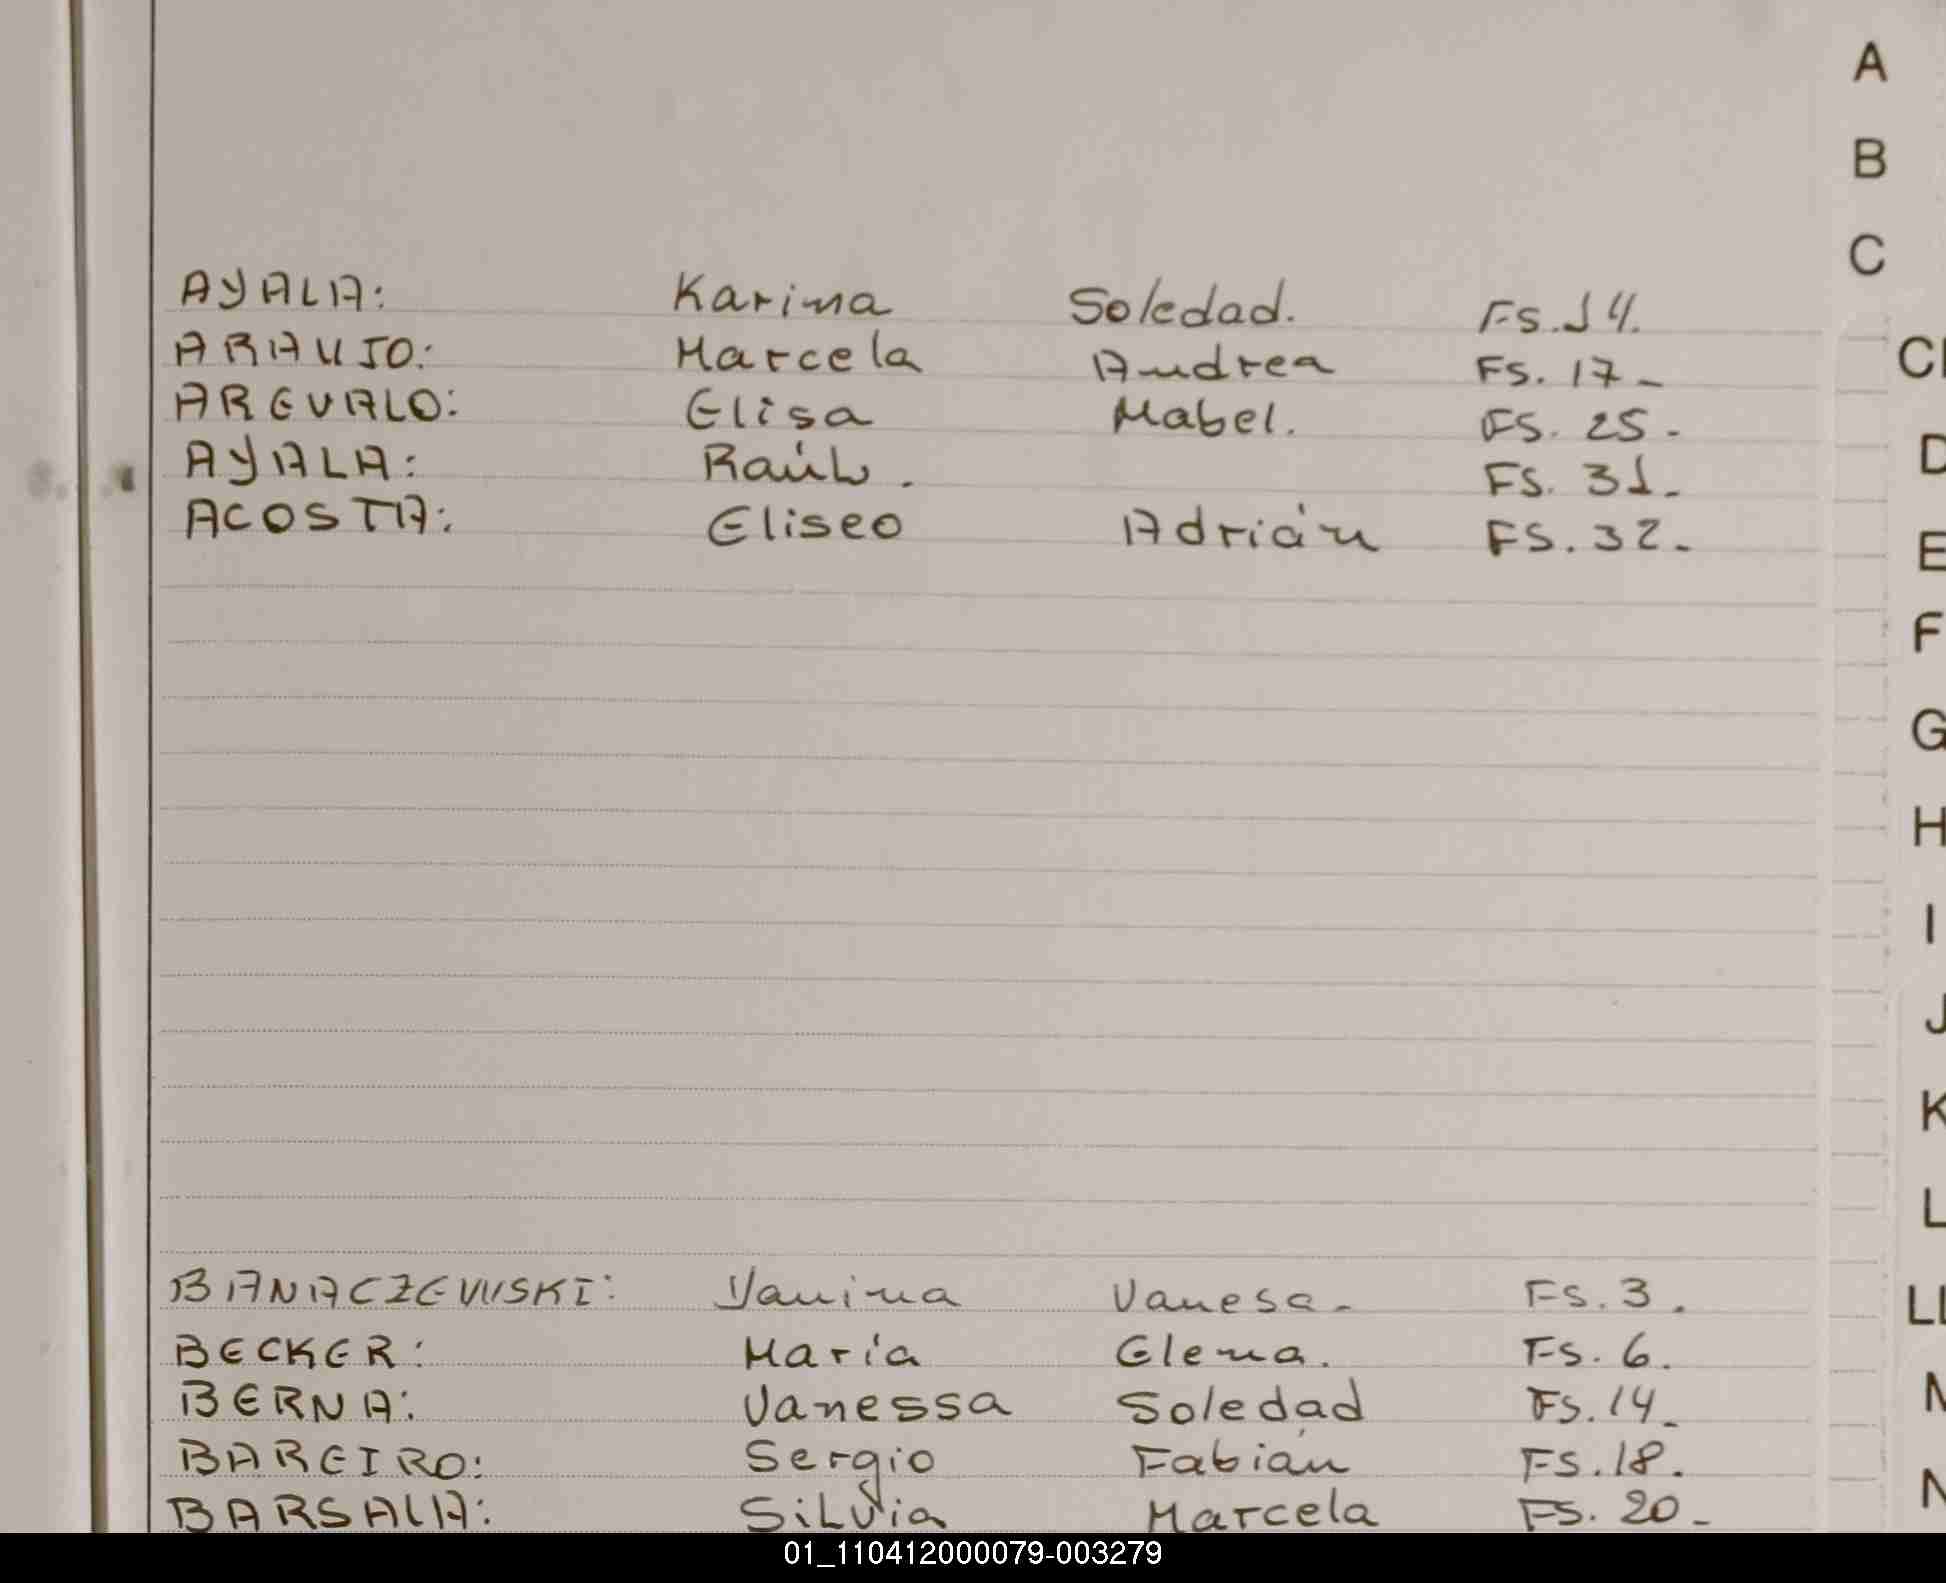 A
B
C
AYALA: Karina Soledad. Fs. 14.
ARAUJO: Marcela Andrea Fs. 17-
AREVALO: Elisa Mabel. Fs. 25.
AYALA: Raúl. Fs. 31-
ACOSTA: Eliseo Adrián Fs. 32-
D
E
F
G
H
I
J
K
L
BANACZEWSKI: Yanina Vanesa- Fs. 3.
LL
BECKER: María Elena. Fs. 6.
BERNA: Vanessa Soledad Fs. 14-
M
BAREIRO: Sergio Fabián Fs. 18.
N
BARSALIA: Silvia Marcela Fs. 20-
01_110412000079-003279